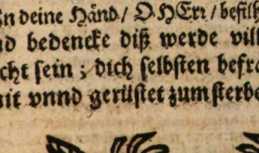 in deine Händ / O HErr / befilh
nd bedencke diß werde vill
cht sein ; dich selbsten befra
mit vnnd gerüstet zum sterbe